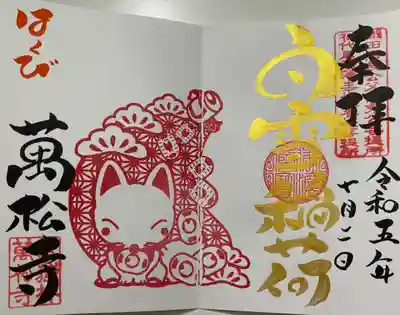 奉拝
令和五年
十月二日
白雪稲荷
はくび
萬松寺